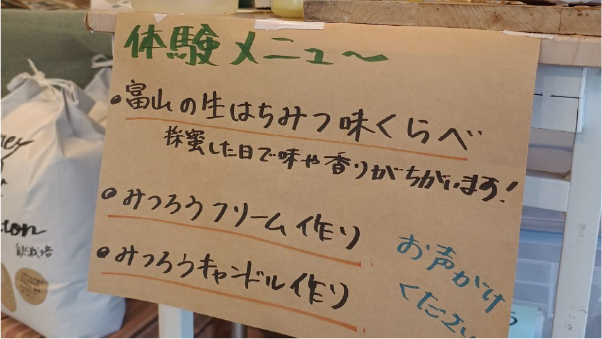 体験メニュ〜
・富山の生はちみつ味くらべ
採蜜した日で味や香りがちがいます!
・みつろうクリーム作り
・みつろうキャンドル作り
お声がけ
ください